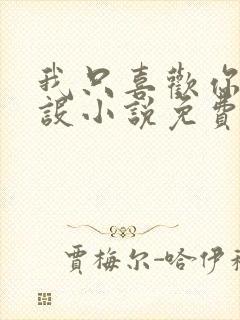 我只喜歡你
設小說免費
賈梅尔-哈伊